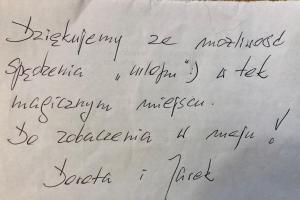 Dziękujemy za możliwość
spędzenia „urlopu" :) w tak
magicznym miejscu.
Do zobaczenia w maju!
Dorota i Jarek